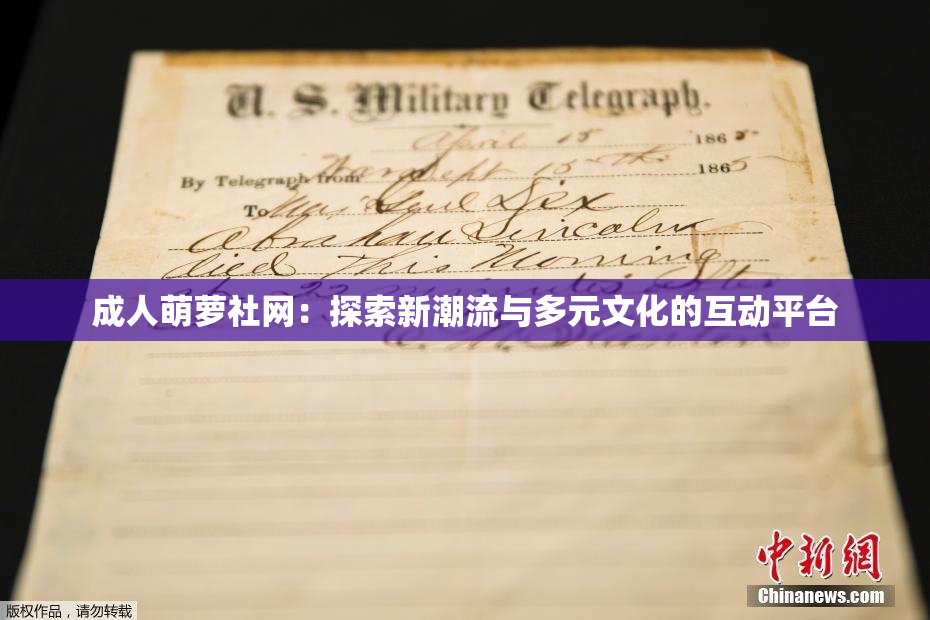 U. S. Military Telegraph.
April 15 1865
By Telegraph from War Dept 15th 1865
To Maj Genl Dix
Abraham Lincoln
died This Morning
at 22 minutes after
成人萌萝社网：探索新潮流与多元文化的互动平台
E. M. Stanton
中新網
Chinanews.com
版权作品，请勿转载